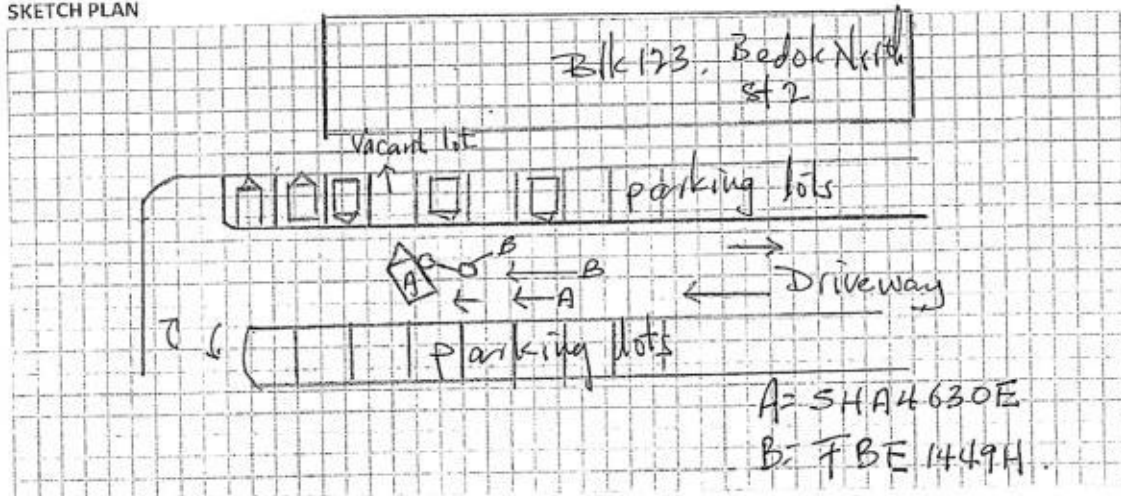 SKETCH PLAN
Blk 123. Bedok North
St 2
Vacant lot
parking lots
B
B
A
A
Driveway
parking lots
A= SHA4630E
B= FBE1449H.